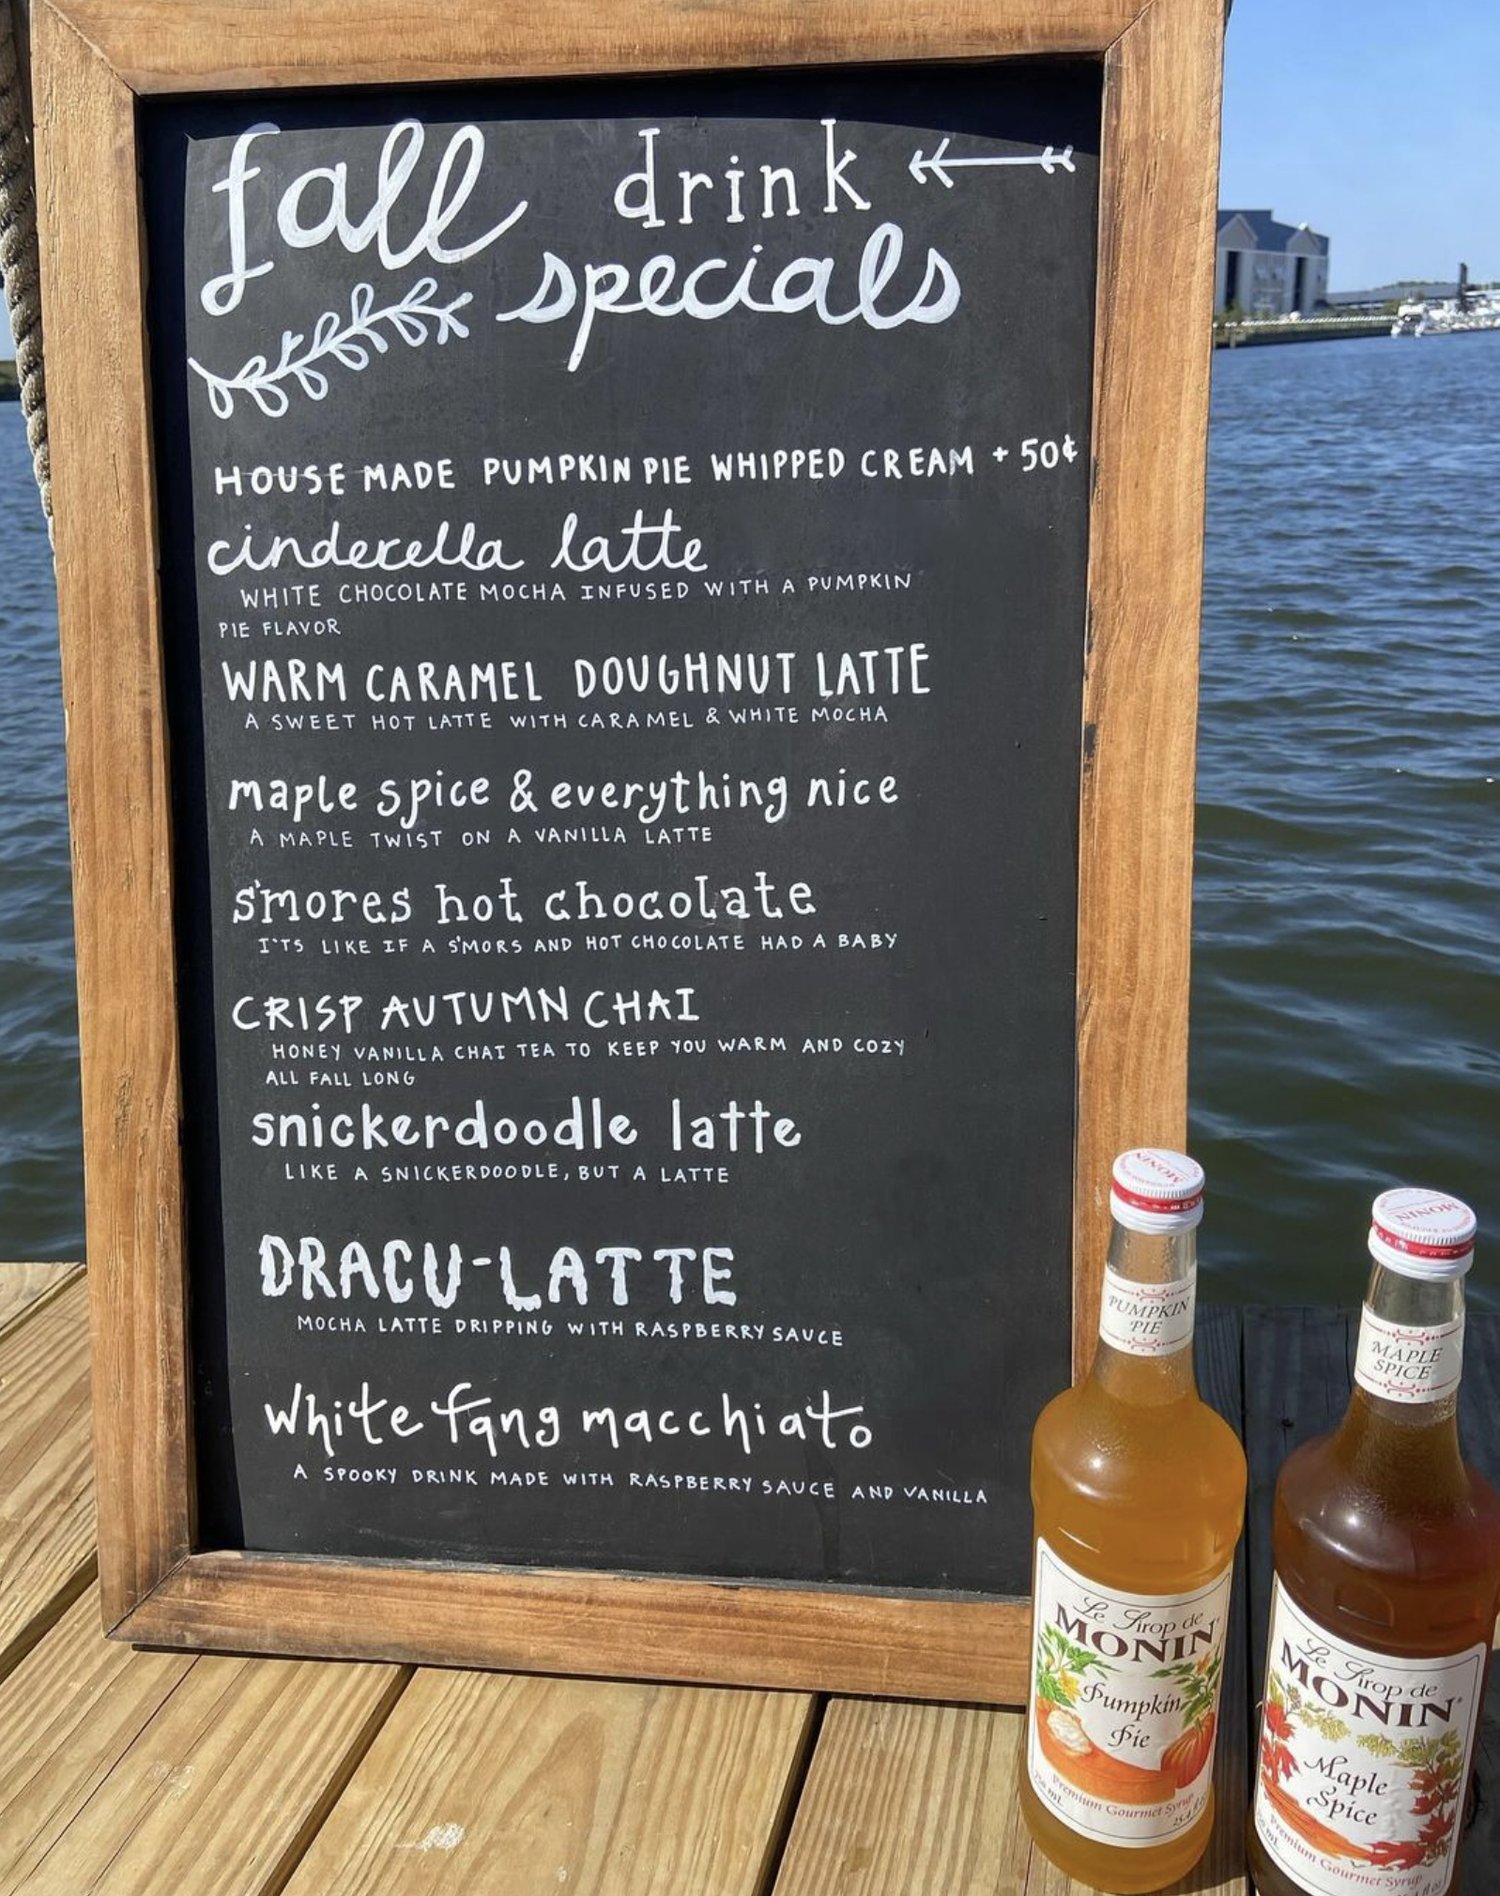 fall drink
specials
HOUSE MADE PUMPKIN PIE WHIPPED CREAM + 50¢
cinderella latte
WHITE CHOCOLATE MOCHA INFUSED WITH A PUMPKIN
PIE FLAVOR
WARM CARAMEL DOUGHNUT LATTE
A SWEET HOT LATTE WITH CARAMEL & WHITE MOCHA
maple spice & everything nice
A MAPLE TWIST ON A VANILLA LATTE
s'mores hot chocolate
I'TS LIKE IF A S'MORS AND HOT CHOCOLATE HAD A BABY
CRISP AUTUMN CHAI
HONEY VANILLA CHAI TEA TO KEEP YOU WARM AND COZY
ALL FALL LONG
snickerdoodle latte
LIKE A SNICKERDOODLE, BUT A LATTE
DRACU-LATTE
MOCHA LATTE DRIPPING WITH RASPBERRY SAUCE
white fang macchiato
A SPOOKY DRINK MADE WITH RASPBERRY SAUCE AND VANILLA
MONIN
PUMPKIN
PIE
Le Sirop de
MONIN
Pumpkin
Pie
Premium Gourmet Syrup
MONIN
MAPLE
SPICE
Le Sirop de
MONIN
Maple
Spice
Premium Gourmet Syrup